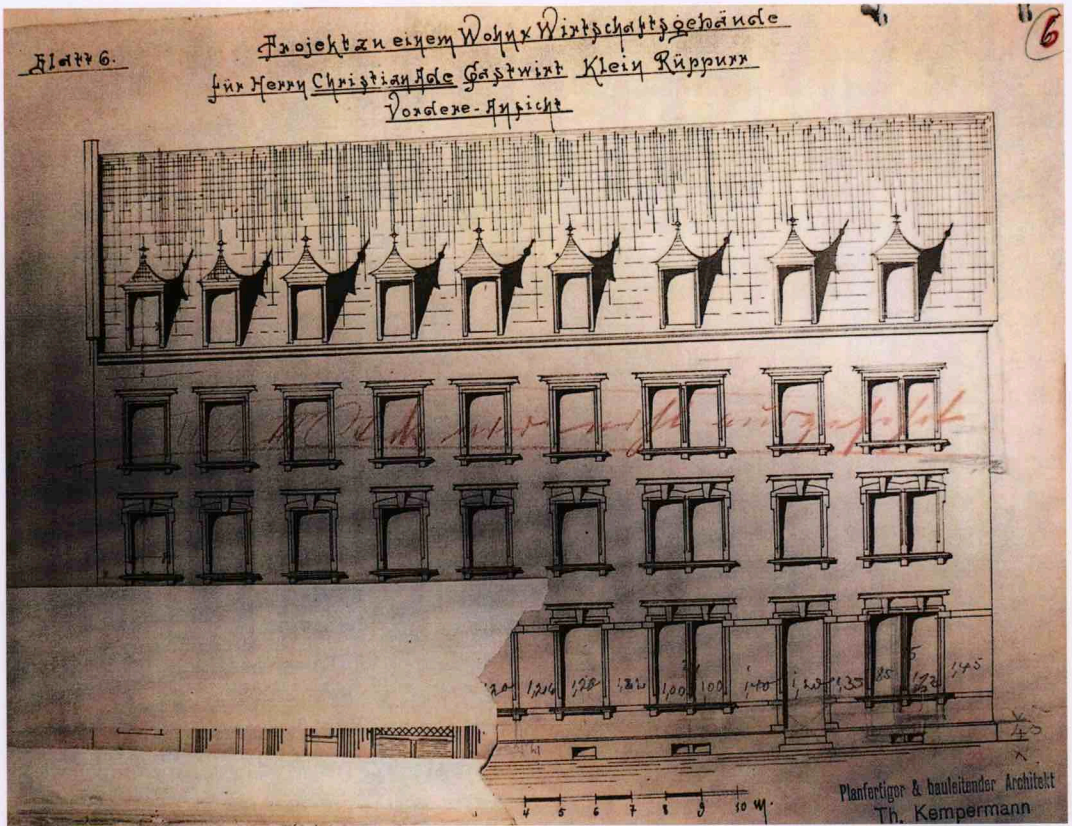 Blatt 6.
6
Projekt zu einem Wohn x Wirtschaftsgebäude
für Herrn Christian Ade Gastwirt Klein Rüppurr
Vordere-Ansicht
nicht ausgeführt
1,20 1,26 1,20 1,00 1,00 1,40 1,20 1,35 85 1,45
4 5 6 7 8 9 10 M.
Planfertiger & bauleitender Architekt
Th. Kempermann